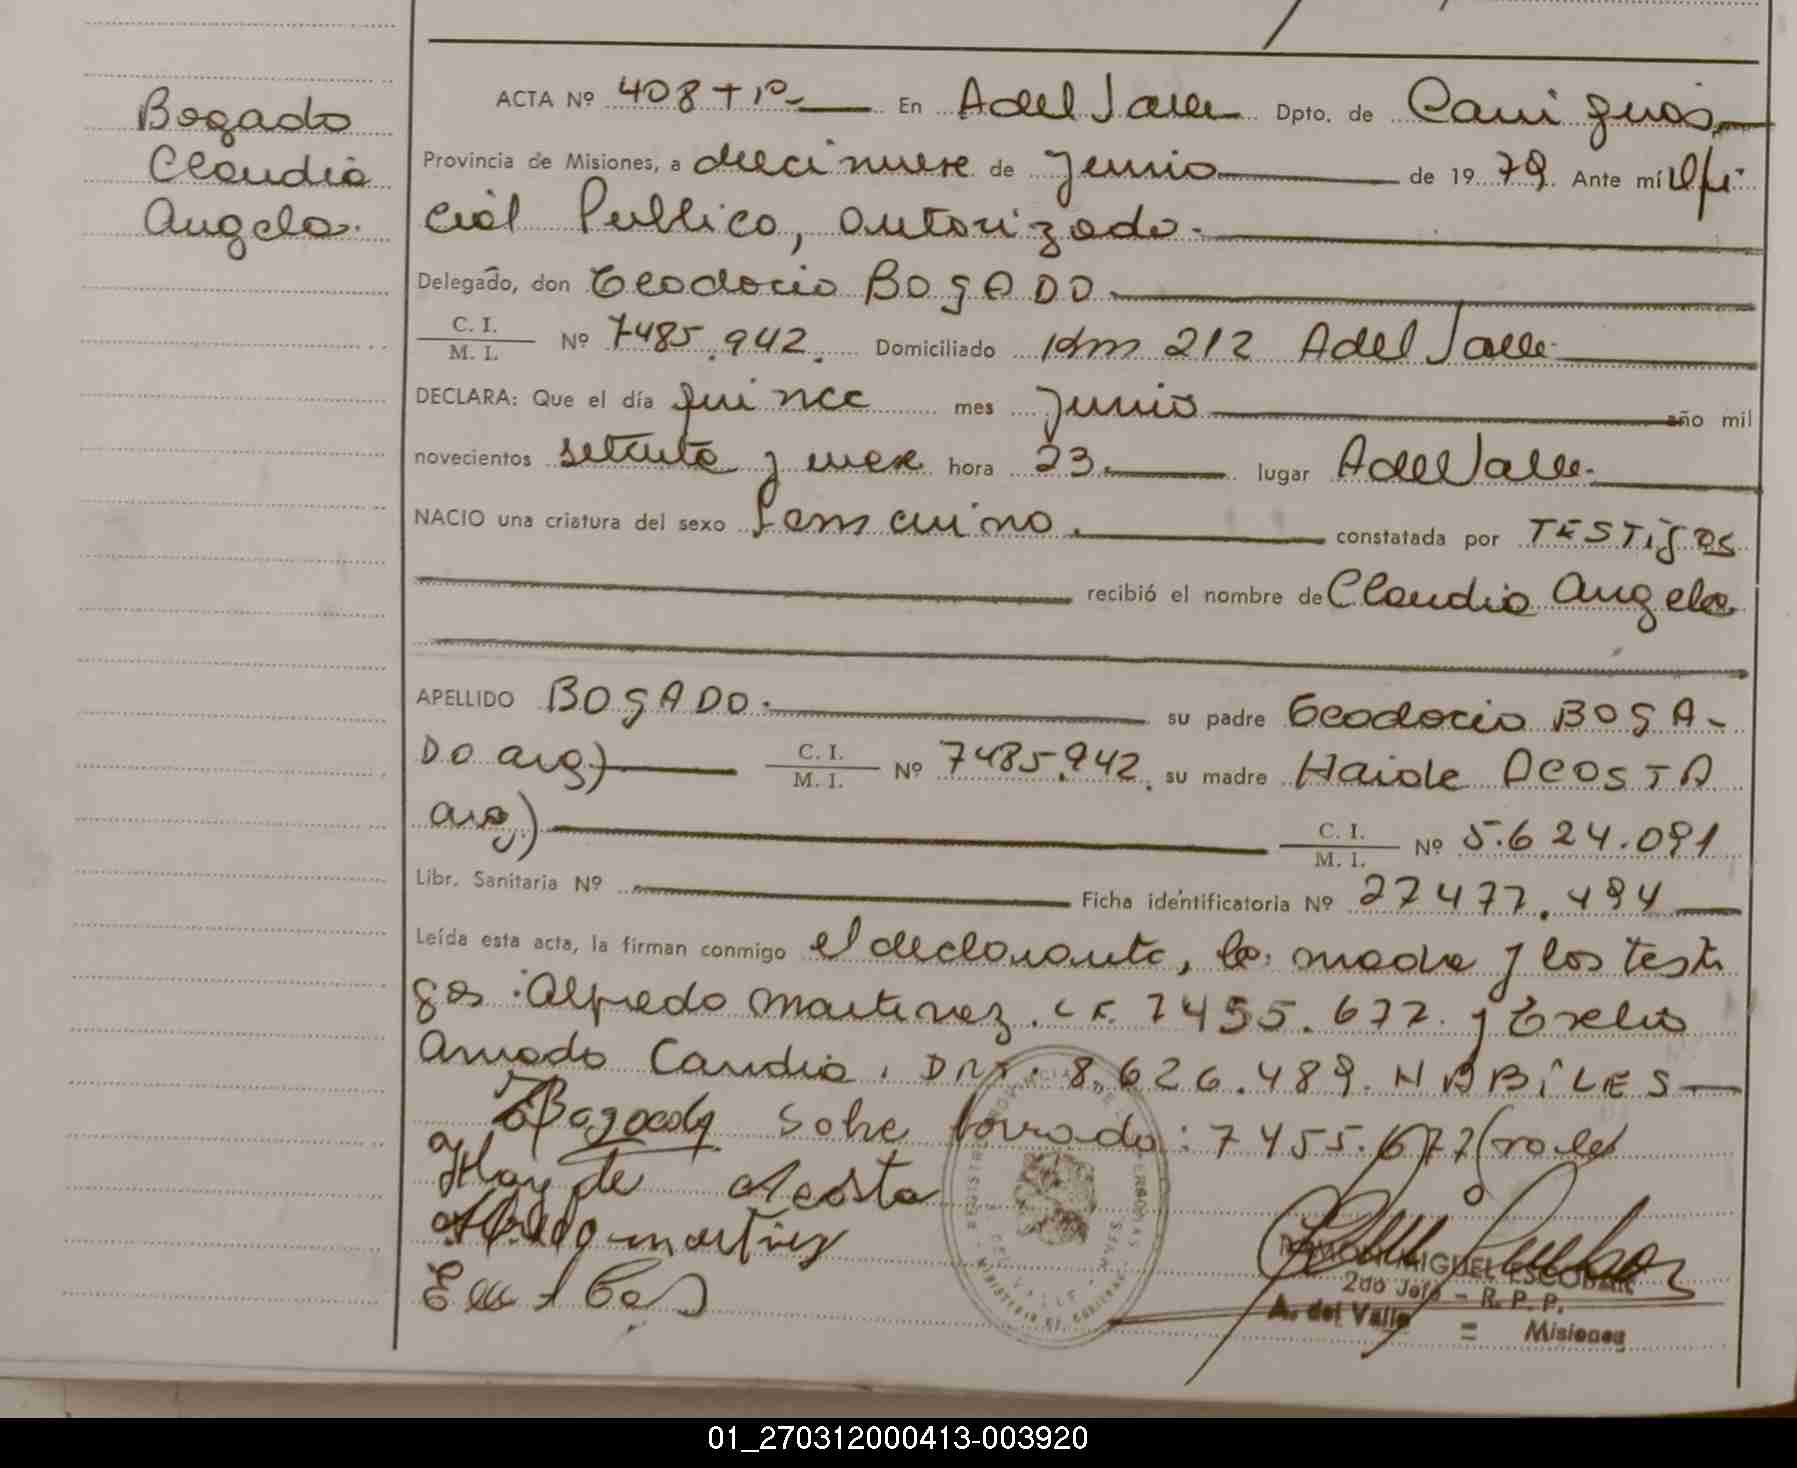 Bogado
Claudia
Angela.
ACTA Nº 408 + 1º En A del Valle Dpto. de Cainguás
Provincia de Misiones, a diecinueve de junio de 1979. Ante mí Ofi-
cial Publico, autorizado.
Delegado, don Teodocio BOGADO
C. I.
M. I.
Nº 7485.942. Domiciliado Km 212 A del Valle
DECLARA: Que el día quince mes junio año mil
novecientos setenta y nueve hora 23. lugar A del Valle
NACIO una criatura del sexo femenino. constatada por TESTigos
recibió el nombre de Claudia Angela
APELLIDO BOGADO. su padre Teodocio BOGA-
DO arg) C. I.
M. I.
Nº 7485.942. su madre Haide ACOSTA
arg) C. I.
M. I.
Nº 5.624.091
Libr. Sanitaria Nº Ficha identificatoria Nº 27477.494
Leída esta acta, la firman conmigo el declarante, la madre y los testi
gos: Alfredo Martinez. 7455.672. y
Amado Candia. DNI. 8.626.489. HABILES
TBogado Sobre borrado: 7455.672 (vale)
Hayde Acosta
Alfredo martinez
REGISTRO PROVINCIAL DE LAS PERSONAS
MINISTERIO DE GOBIERNO
RAMON MIGUEL ESCOBAR
2do Jefe - R. P. P.
A. del Valle = Misiones
01_270312000413-003920